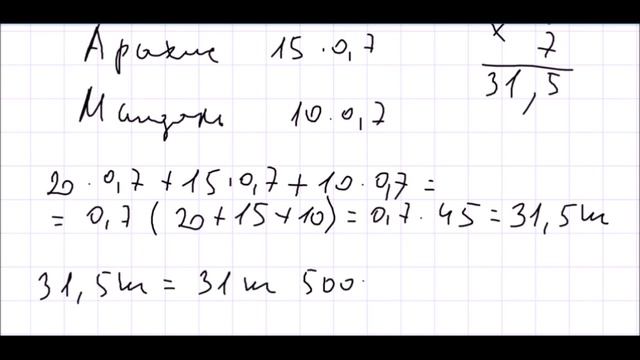 Арахис 15 · 0,7
Миндаль 10 · 0,7
× 7
31,5
20 · 0,7 + 15 · 0,7 + 10 · 0,7 =
= 0,7 (20 + 15 + 10) = 0,7 · 45 = 31,5 т
31,5 т = 31 т 500